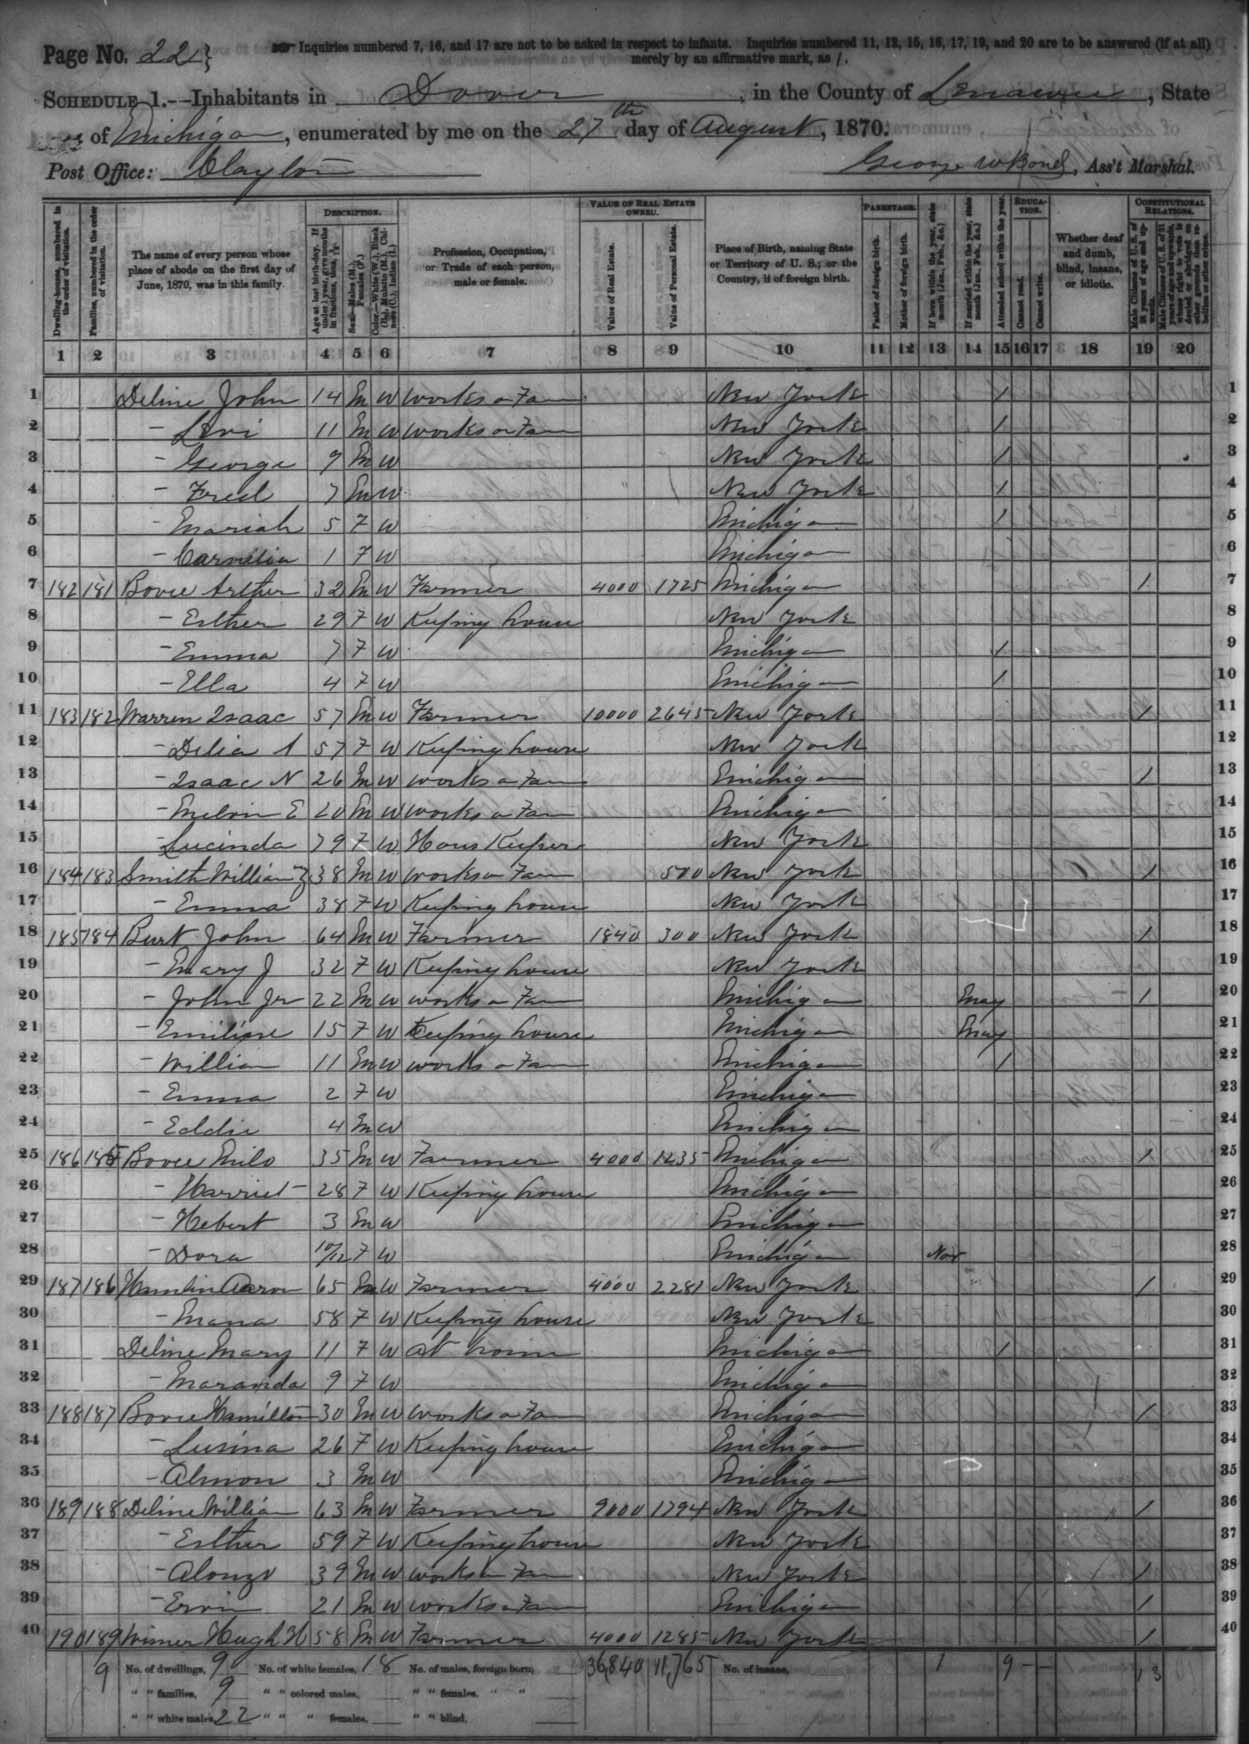 Page No. 22
Inquiries numbered 7, 16, and 17 are not to be asked in respect to infants. Inquiries numbered 11, 12, 15, 16, 17, 19, and 20 are to be answered (if at all) merely by an affirmative mark, as /.
SCHEDULE 1.—Inhabitants in Dover, in the County of Lenawee, State
of Michigan, enumerated by me on the 27th day of August, 1870.
Post Office: Clayton George W Bond, Ass't Marshal.
Dwelling-houses, numbered in the order of visitation.
Families, numbered in the order of visitation.
The name of every person whose place of abode on the first day of June, 1870, was in this family.
DESCRIPTION.
Age at last birth-day. If under 1 year, give months in fractions, thus, 3/12
Sex.—Males (M.), Females (F.)
Color.—White (W.), Black (B.), Mulatto (M.), Chinese (C.), Indian (I.)
Profession, Occupation, or Trade of each person, male or female.
VALUE OF REAL ESTATE OWNED.
Value of Real Estate.
Value of Personal Estate.
Place of Birth, naming State or Territory of U. S.; or the Country, if of foreign birth.
PARENTAGE.
Father of foreign birth.
Mother of foreign birth.
If born within the year, state month (Jan., Feb., &c.)
If married within the year, state month (Jan., Feb., &c.)
Attended school within the year.
EDUCATION.
Cannot read.
Cannot write.
Whether deaf and dumb, blind, insane, or idiotic.
CONSTITUTIONAL RELATIONS.
Male Citizens of U. S. of 21 years of age and upwards.
Male Citizens of U. S. of 21 years of age and upwards, whose right to vote is denied or abridged on other grounds than rebellion or other crime.
1 2 3 4 5 6 7 8 9 10 11 12 13 14 15 16 17 18 19 20
1 Deline John 14 M W Works on Farm New York / 1
2 — Levi 11 M W Works on Farm New York / 2
3 — George 9 M W New York / 3
4 — Fred 7 M W New York / 4
5 — Mariah 5 F W Michigan / 5
6 — Carnelia 1 F W Michigan 6
7 182 181 Bovee Arther 32 M W Farmer 4000 1725 Michigan / 7
8 — Esther 29 F W Keeping house New York 8
9 — Emma 7 F W Michigan / 9
10 — Ella 4 F W Michigan / 10
11 183 182 Warren Isaac 57 M W Farmer 10000 2645 New York / 11
12 — Delia A 57 F W Keeping house New York 12
13 — Isaac N 26 M W works on Farm Michigan / 13
14 — Melvin E 20 M W works on Farm Michigan 14
15 Lucinda 79 F W Hous Keeper New York 15
16 184 183 Smith William 38 M W works on Farm 500 New York / 16
17 — Emma 38 F W Keeping house New York 17
18 185 184 Burt John 64 M W Farmer 1840 300 New York / 18
19 — Mary J 32 F W Keeping house New York 19
20 — John Jr 22 M W works on Farm Michigan May / 20
21 — Emiline 15 F W Keeping house Michigan May 21
22 — William 11 M W works on Farm Michigan / 22
23 — Emma 2 F W Michigan 23
24 — Eddie 4 M W Michigan 24
25 186 185 Bovee Milo 35 M W Farmer 4000 1235 Michigan / 25
26 — Harriet 28 F W Keeping house Michigan 26
27 — Hebert 3 M W Michigan 27
28 — Dora 10/12 F W Michigan Nov 28
29 187 186 Hamlin Aaron 65 M W Farmer 4000 2281 New York / 29
30 — 58 F W Keeping house New York 30
31 Deline Mary 11 F W at home Michigan / 31
32 — Maranda 9 F W Michigan 32
33 188 187 Bovee Hamilton 30 M W works on Fa Michigan / 33
34 — Lusina 26 F W Keeping house Michigan 34
35 — Almon 3 M W Michigan 35
36 189 188 Deline William 63 M W Farmer 9000 1794 New York / 36
37 — Esther 59 F W Keeping house New York 37
38 — Alonzo 39 M W works on Fam New York / 38
39 — Ervin 21 M W works on Fam Michigan / 39
40 190 189 Wimer Hugh H 58 M W Farmer 4000 1285 New York / 40
9 No. of dwellings, 9 No. of white females, 18 No. of males, foreign born, 36,840 11,765 No. of insane, 1 9 13
" " families, 9 " " colored males, " " females, " "
" " white males, 22 " " " females, " " blind,